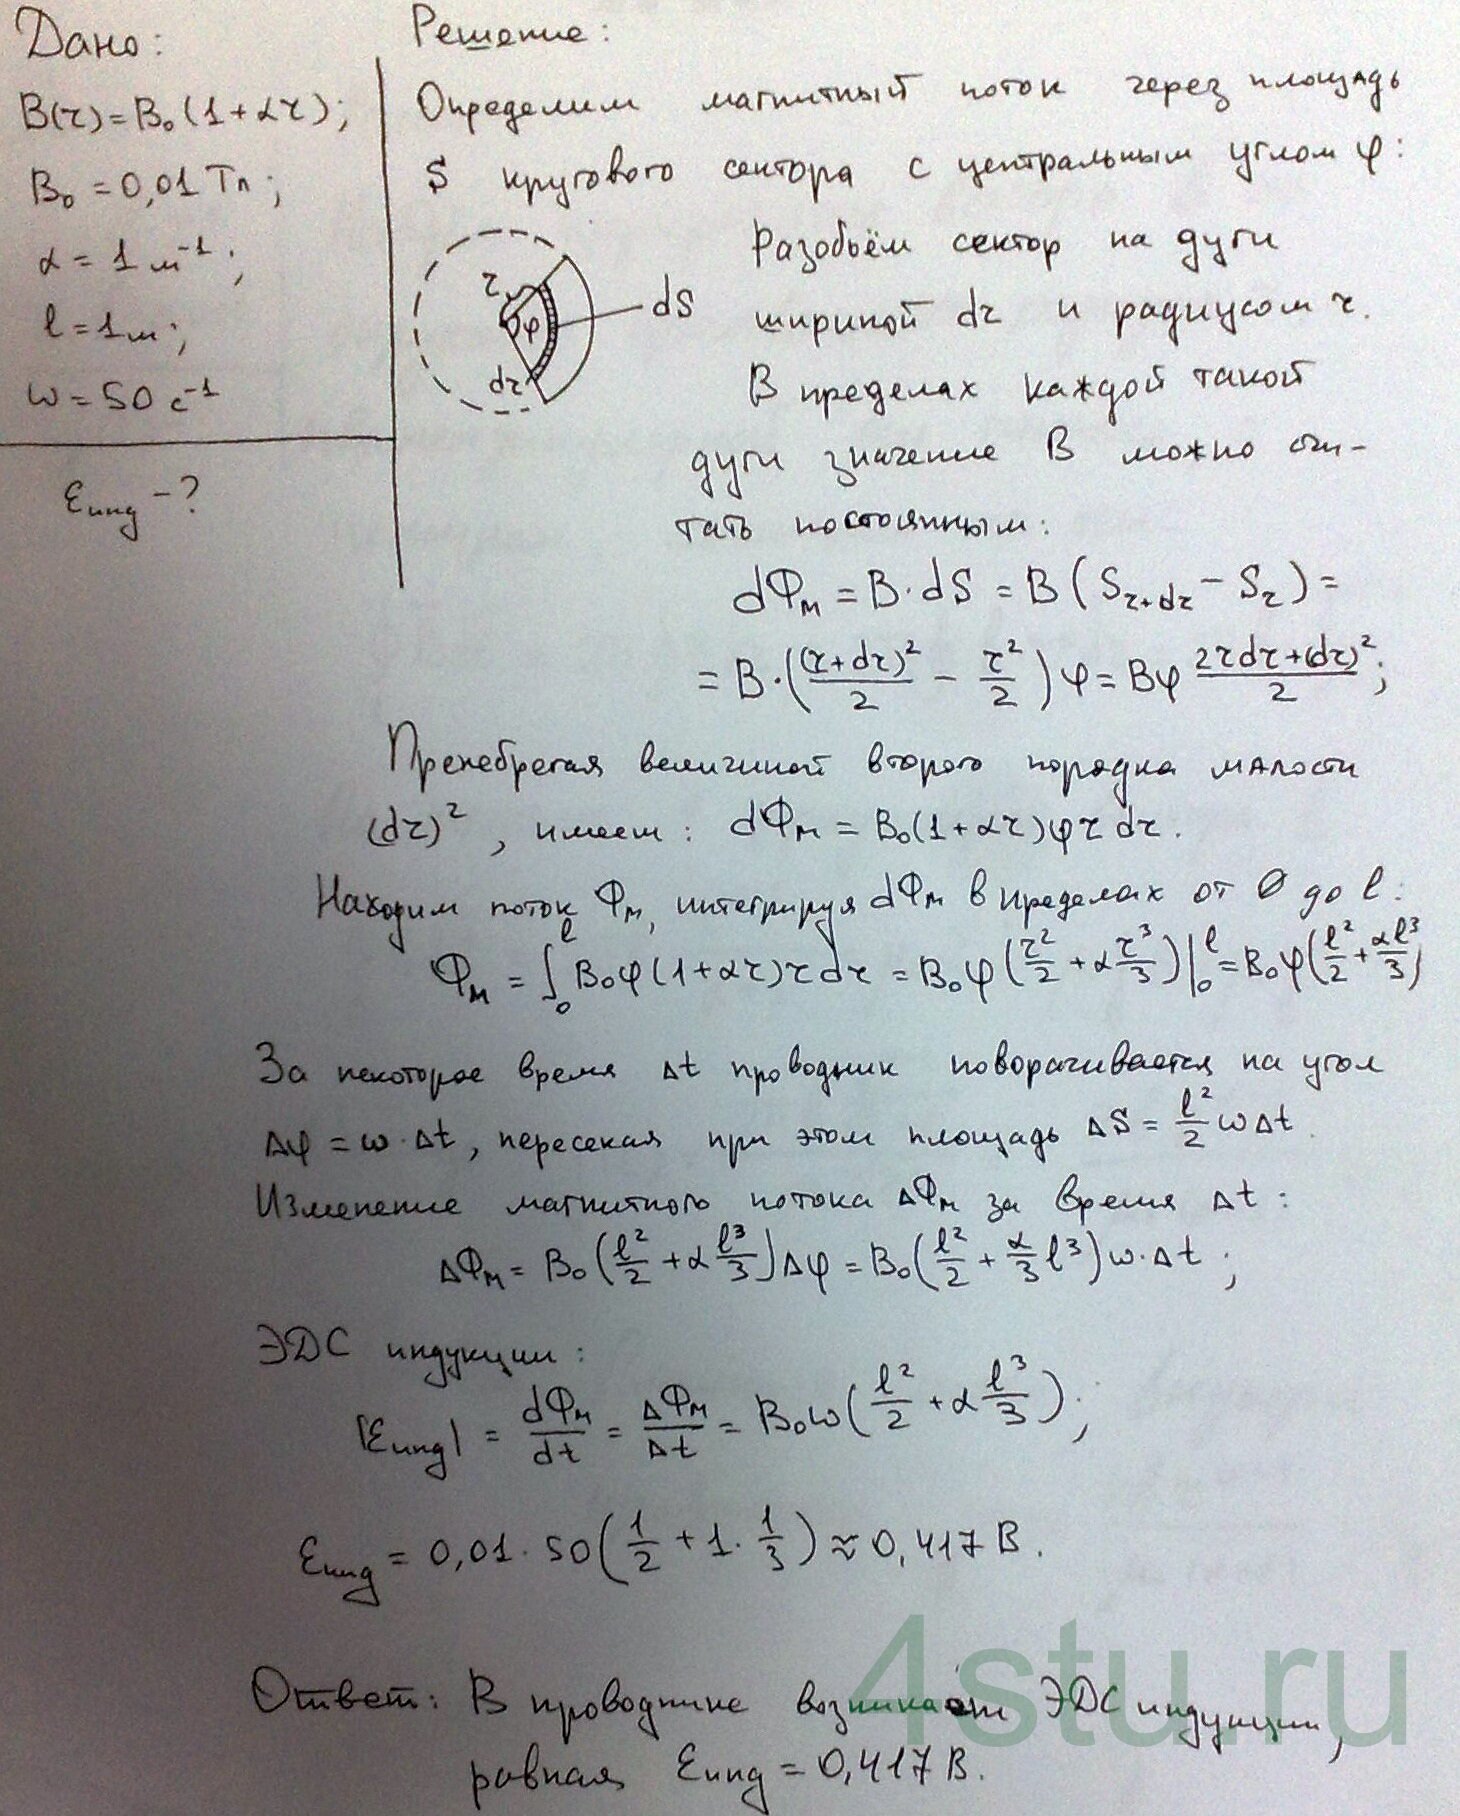 Дано:
B(r)=B₀(1+αr);
B₀ = 0,01 Тл;
α = 1 м⁻¹;
l = 1 м;
ω = 50 с⁻¹
εинд - ?
Решение:
Определим магнитный поток через площадь
S кругового сектора с центральным углом φ:
r
φ
dr
dS
Разобьём сектор на дуги
шириной dr и радиусом r.
В пределах каждой такой
дуги значение B можно счи-
тать постоянным:
dФм = B·dS = B(S_{r+dr} - S_r) =
= B·((r+dr)²/2 - r²/2)φ = Bφ (2rdr+(dr)²)/2;
Пренебрегая величиной второго порядка малости
(dr)², имеем: dФм = B₀(1+αr)φr dr.
Находим поток Фм, интегрируя dФм в пределах от 0 до l:
Фм = ∫₀ˡ B₀φ(1+αr)r dr = B₀φ(r²/2 + α r³/3)|₀ˡ = B₀φ(l²/2 + αl³/3)
За некоторое время Δt проводник поворачивается на угол
Δφ = ω·Δt, пересекая при этом площадь ΔS = l²/2 ωΔt.
Изменение магнитного потока ΔФм за время Δt:
ΔФм = B₀(l²/2 + α l³/3)Δφ = B₀(l²/2 + α/3 l³)ω·Δt;
ЭДС индукции:
|εинд| = dФм/dt = ΔФм/Δt = B₀ω(l²/2 + α l³/3);
εинд = 0,01·50(1/2 + 1·1/3) ≈ 0,417 В.
Ответ: В проводнике возникает ЭДС индукции,
равная εинд = 0,417 В.
4stu.ru